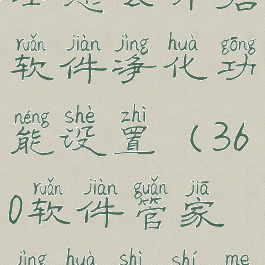 ruǎn jiàn jìng huà gōng
软件净化功
néng shè zhì
能设置（36
ruǎn jiàn guǎn jiā
0软件管家
jìng huà shì shí me